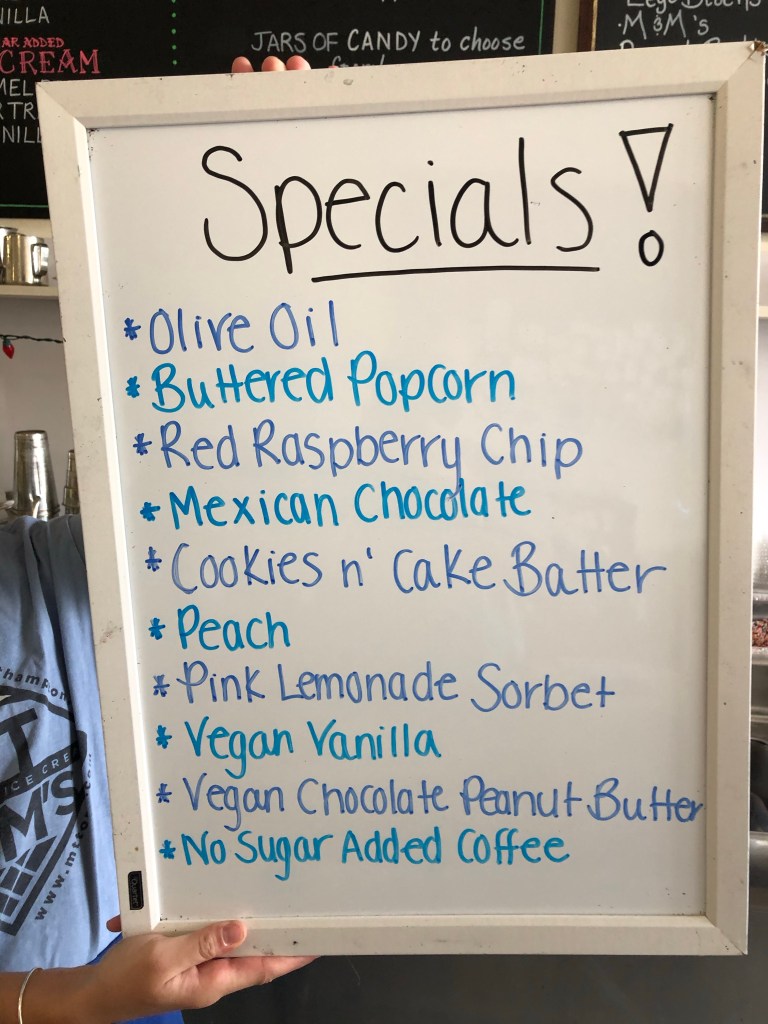 NILLA
AR ADDED
CREAM
JARS OF CANDY to choose
M&M's
Specials!
* Olive Oil
* Buttered Popcorn
* Red Raspberry Chip
* Mexican Chocolate
* Cookies n' Cake Batter
* Peach
* Pink Lemonade Sorbet
* Vegan Vanilla
* Vegan Chocolate Peanut Butter
* No Sugar Added Coffee
ICE CRE
M'S
www.mt
Quartet